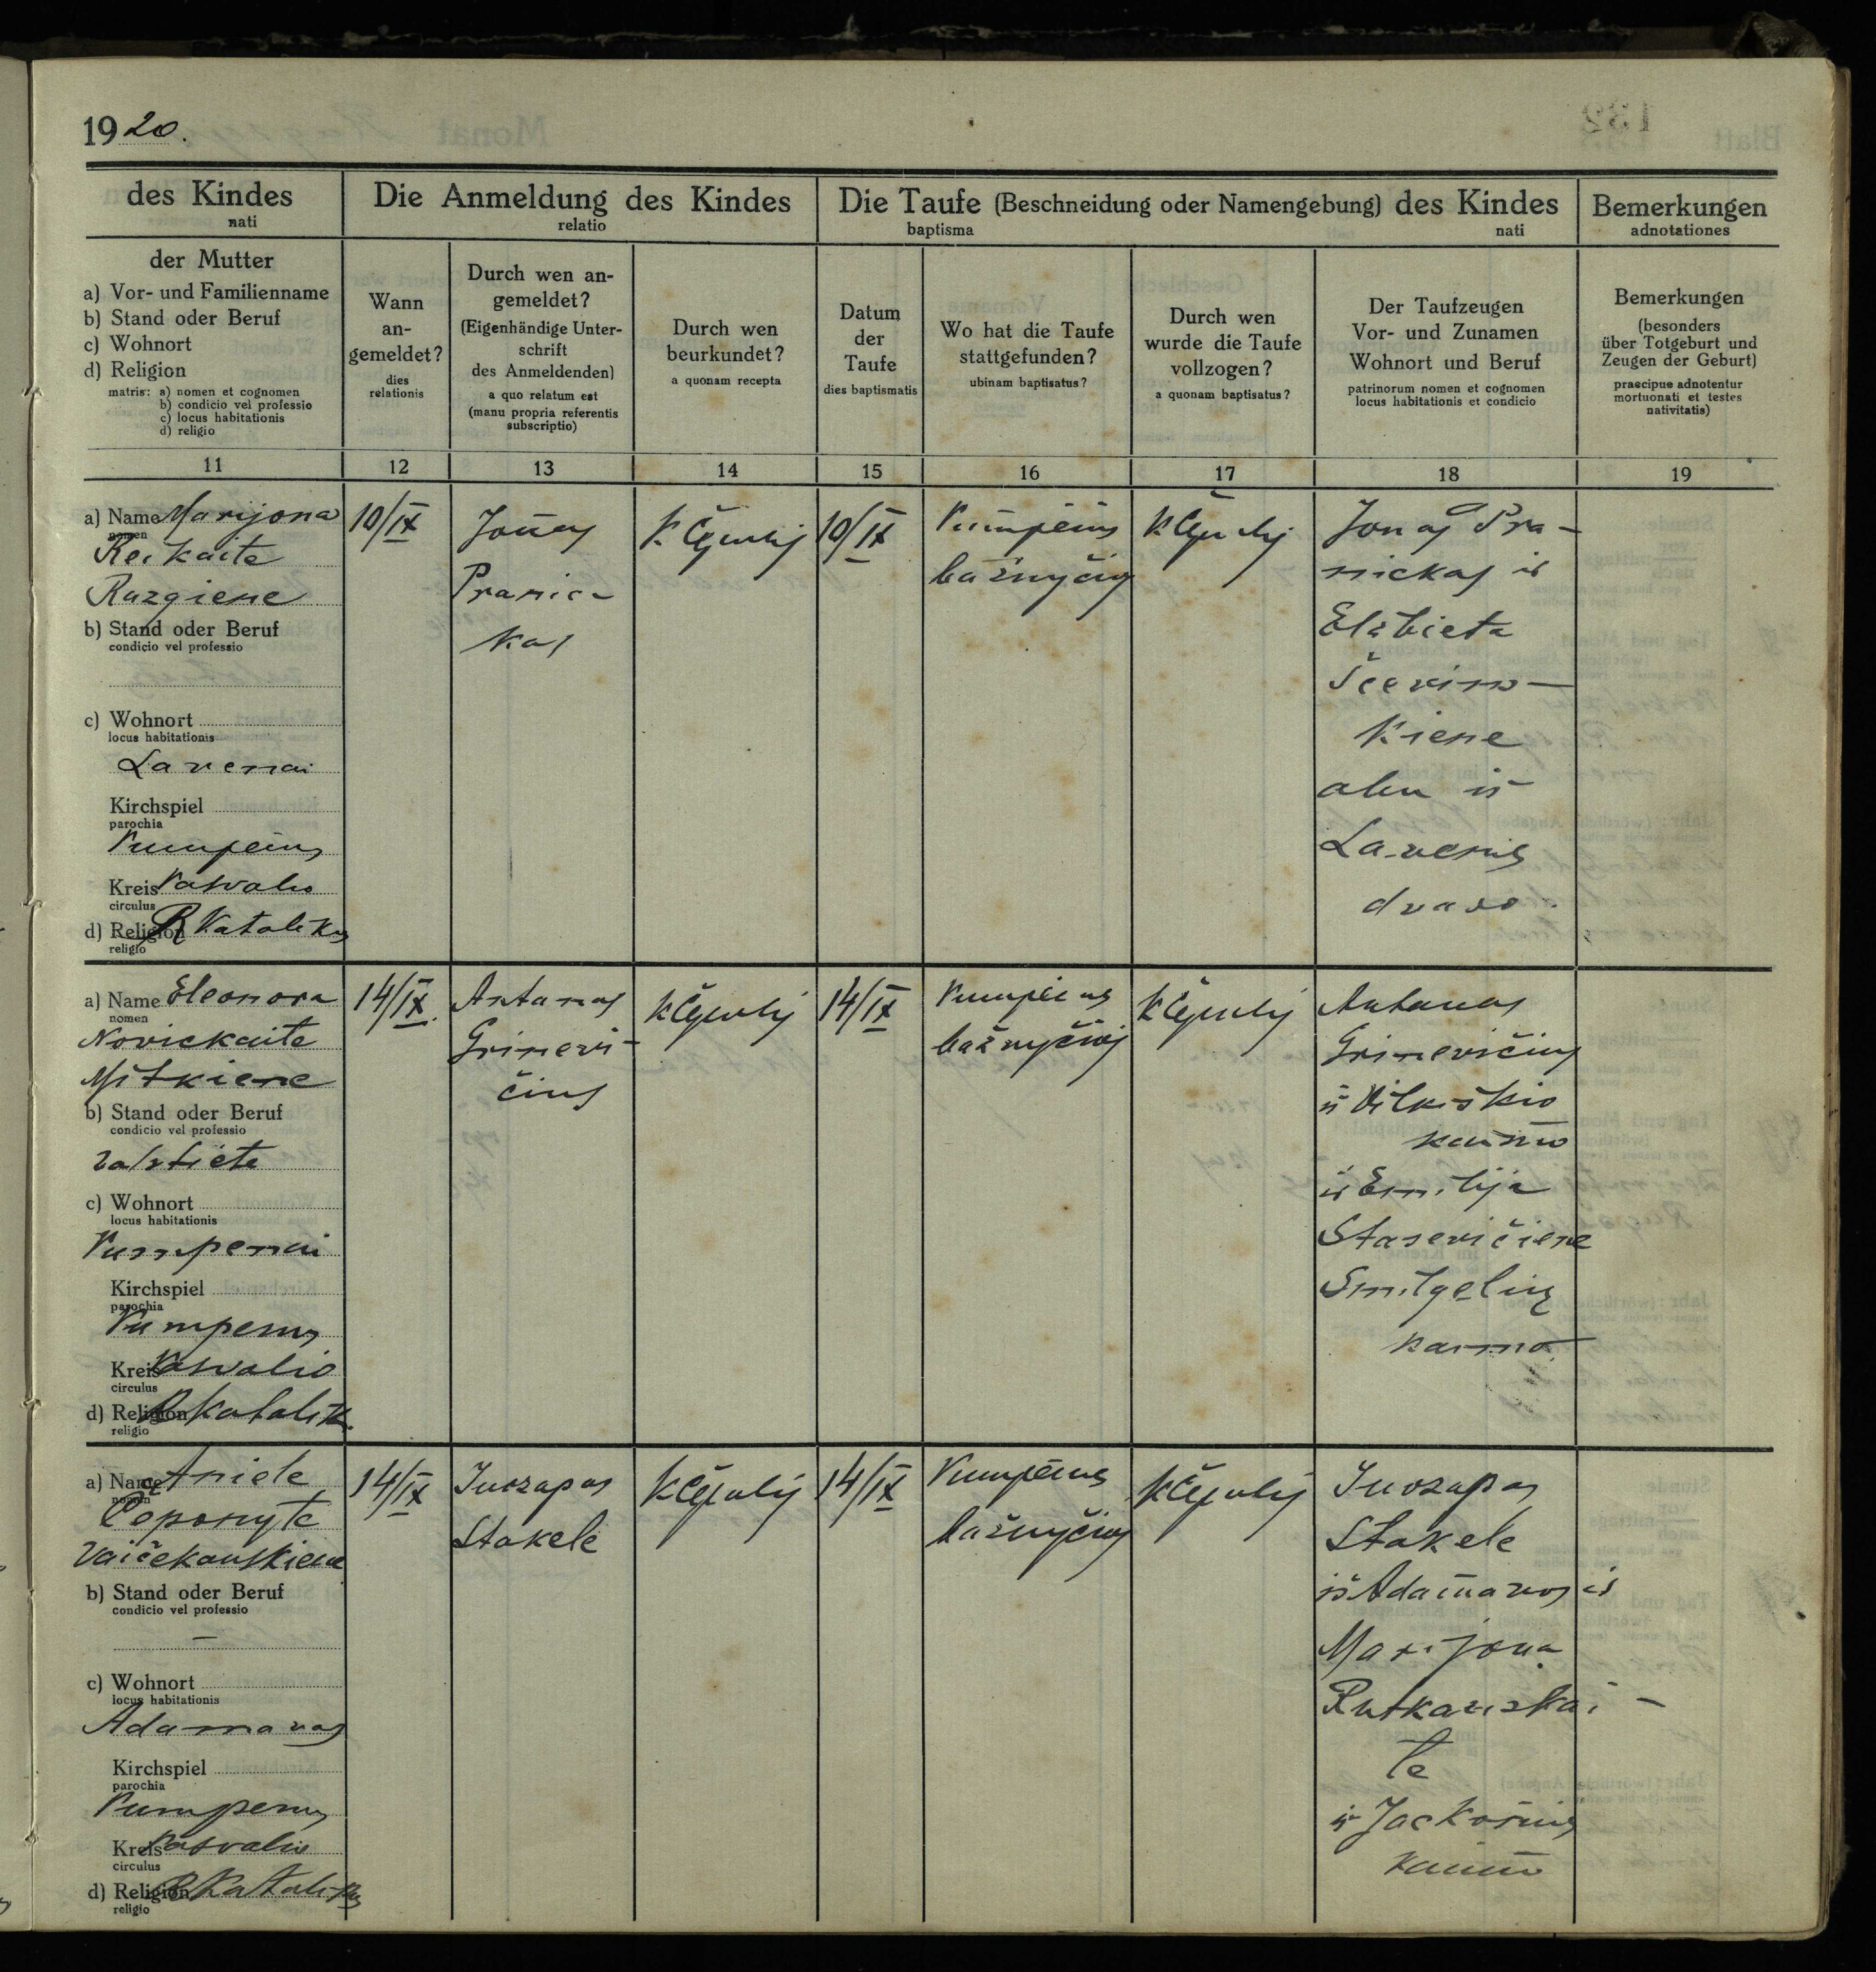 1920.
des Kindes
nati
Die Anmeldung des Kindes
relatio
Die Taufe (Beschneidung oder Namengebung) des Kindes
baptisma nati
Bemerkungen
adnotationes
der Mutter
a) Vor- und Familienname
b) Stand oder Beruf
c) Wohnort
d) Religion
matris: a) nomen et cognomen
b) condicio vel professio
c) locus habitationis
d) religio
Wann
an-
gemeldet?
dies
relationis
Durch wen an-
gemeldet?
(Eigenhändige Unter-
schrift
des Anmeldenden)
a quo relatum est
(manu propria referentis
subscriptio)
Durch wen
beurkundet?
a quonam recepta
Datum
der
Taufe
dies baptismatis
Wo hat die Taufe
stattgefunden?
ubinam baptisatus?
Durch wen
wurde die Taufe
vollzogen?
a quonam baptisatus?
Der Taufzeugen
Vor- und Zunamen
Wohnort und Beruf
patrinorum nomen et cognomen
locus habitationis et condicio
Bemerkungen
(besonders
über Totgeburt und
Zeugen der Geburt)
praecipue adnotentur
mortuonati et testes
nativitatis)
11 12 13 14 15 16 17 18 19
a) Name Marijona
nomen
Reikaite
Razgiene
b) Stand oder Beruf
condicio vel professio
c) Wohnort
locus habitationis
Lavenai
Kirchspiel
parochia
Pumpenų
Kreis Pasvalio
circulus
d) Religion R Katalikų
religio
10/IX
Jonas
Pranic-
kas
10/IX
Pumpėnų
bažnyčioj
Jonas Pra-
nickas ir
Elzbieta
kiene
abu iš
Lavenų
dvaro.
a) Name Eleonora
nomen
Novickaite
Mitkiene
b) Stand oder Beruf
condicio vel professio
valstiete
c) Wohnort
locus habitationis
Pumpenai
Kirchspiel
parochia
Pumpenų
Kreis Pasvalio
circulus
d) Religion R Katalik.
religio
14/IX.
Antanas
Grinevi-
čius
14/IX
Pumpėnų
bažnyčioj
Antanas
Grinevičius
iš Vilkiškio
kaimo
ir Emilija
Stasevičiene
Smilgelių
kaimo.
a) Name Aniele
nomen
Čeponyte
Vaičekauskiene
b) Stand oder Beruf
condicio vel professio
—
c) Wohnort
locus habitationis
Adamavas
Kirchspiel
parochia
Pumpenų
Kreis Pasvalio
circulus
d) Religion R Katalikų
religio
14/IX
Juozapas
Stakele
14/IX
Pumpėnų
bažnyčioj
Juozapas
Stakele
iš Adamavos ir
Marijona
Rutkauskai-
te
iš Jackonių
kaimo